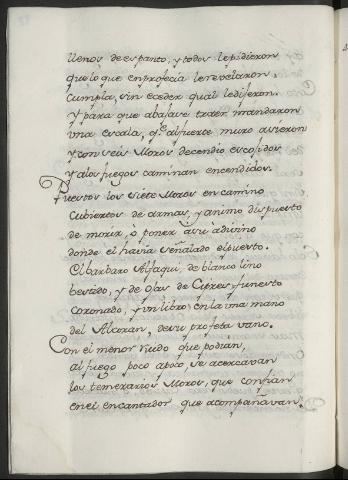 llenos de espanto, y todos le pidieron
que lo que en profecia le revelaron.
Cumpla, sin eceder qual le dijeron.
Y para que abajase traer mandaron
una escala, qe. al fuerte muro asieron
y con seis Moros decendio escojidos
y a los fuegos caminan encendidos.
Puestos los siete Moros en camino
Cubiertos de armas, y animo dispuesto
de morir, ò poner à su adivino
donde el havia señalado el puesto.
El barbaro Alfaqui, de blanco lino
bestido, y de Ojas de Cipres funesto
Coronado, y un libro en la una mano
del Alcoran, de su profeta vano.
Con el menor ruido que podian,
al fuego poco apoco se acercavan
los temerarios Moros, que confian
en el encantador que acompañavan.